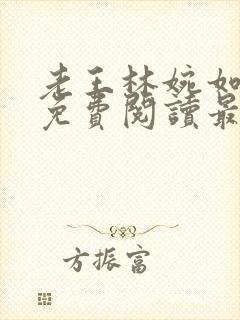 老王林婉如
免費閱讀最
方振富